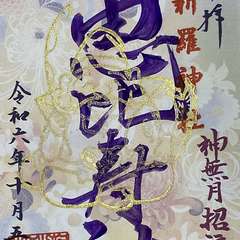 拝
神無月招
新羅神社
恵比寿
令和六年十月五